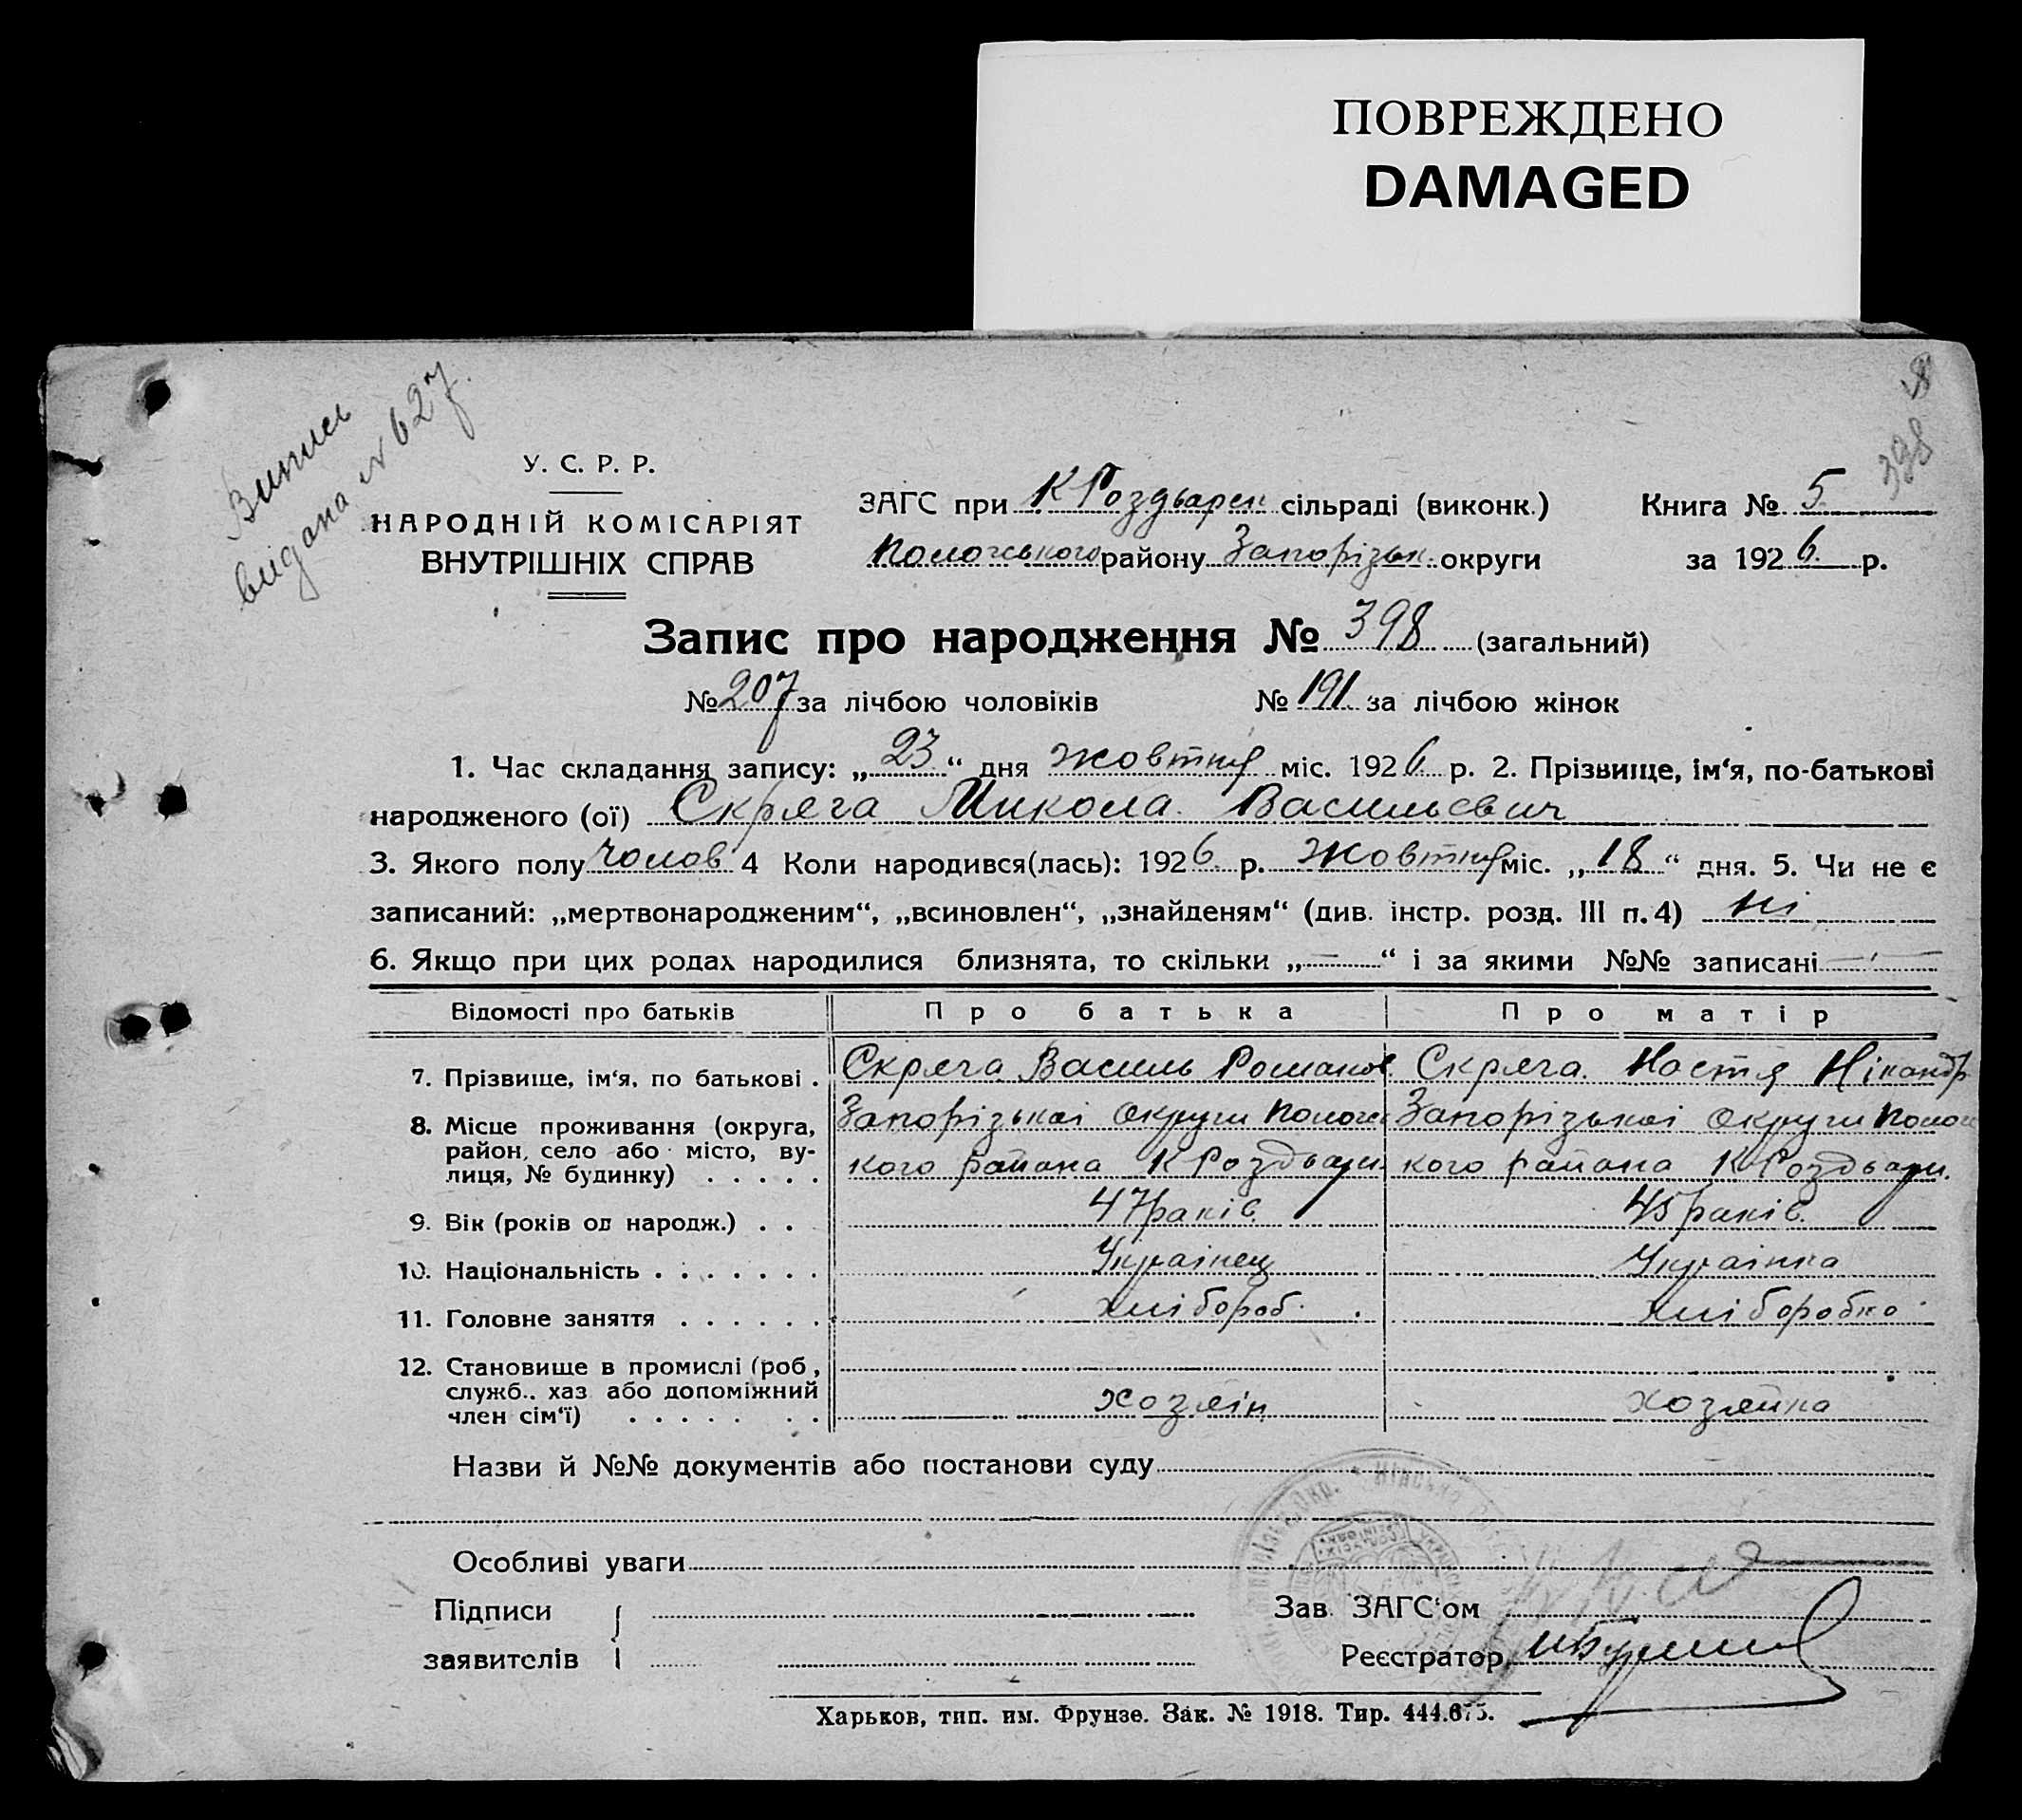 ПОВРЕЖДЕНО
DAMAGED
Випись
видана № 627.
398
У. С. Р. Р.
НАРОДНІЙ КОМІСАРІЯТ
ВНУТРІШНІХ СПРАВ
ЗАГС при К Роздьарсн сільраді (виконк.)
Пологського району Запорізьк. округи
Книга № 5
за 1926 р.
Запис про народження № 398 (загальний)
№ 207 за лічбою чоловіків № 191 за лічбою жінок
1. Час складання запису: „23“ дня жовтня міс. 1926 р. 2. Прізвище, ім‘я, по-батькові
народженого (ої) Скряга Микола Васильевич
3. Якого полу чолов 4 Коли народився(лась): 1926 р. Жовтня міс. „18“ дня. 5. Чи не є
записаний: „мертвонародженим“, „всиновлен“, „знайденям“ (див. інстр. розд. III п. 4) ні
6. Якщо при цих родах народилися близнята, то скільки „—“ і за якими №№ записані —
Відомості про батьків Про батька Про матір
7. Прізвище, ім‘я, по батькові . Скряга Василь Романов. Скряга Настя Нікандр
8. Місце проживання (округа, Запорізькоі Округи Пологс Запорізькоі Округи Полог
район, село або місто, ву-
лиця, № будинку) . . . . . кого района К Роздьари. кого района К Роздьари.
9. Вік (років од народж.) . . 47 років. 45 років.
10. Національність . . . . . . . Украінец Украінка
11. Головне заняття . . . . . . хлібороб. хліборобка
12. Становище в промислі (роб,
служб.. хаз або допоміжний
член сім‘ї) . . . . . . . хозяін хозяйка
Назви й №№ документів або постанови суду
Особливі уваги
Підписи
заявителів
Зав. ЗАГС‘ом
Реєстратор
Харьков, тип. им. Фрунзе. Зак. № 1918. Тир. 444.675.